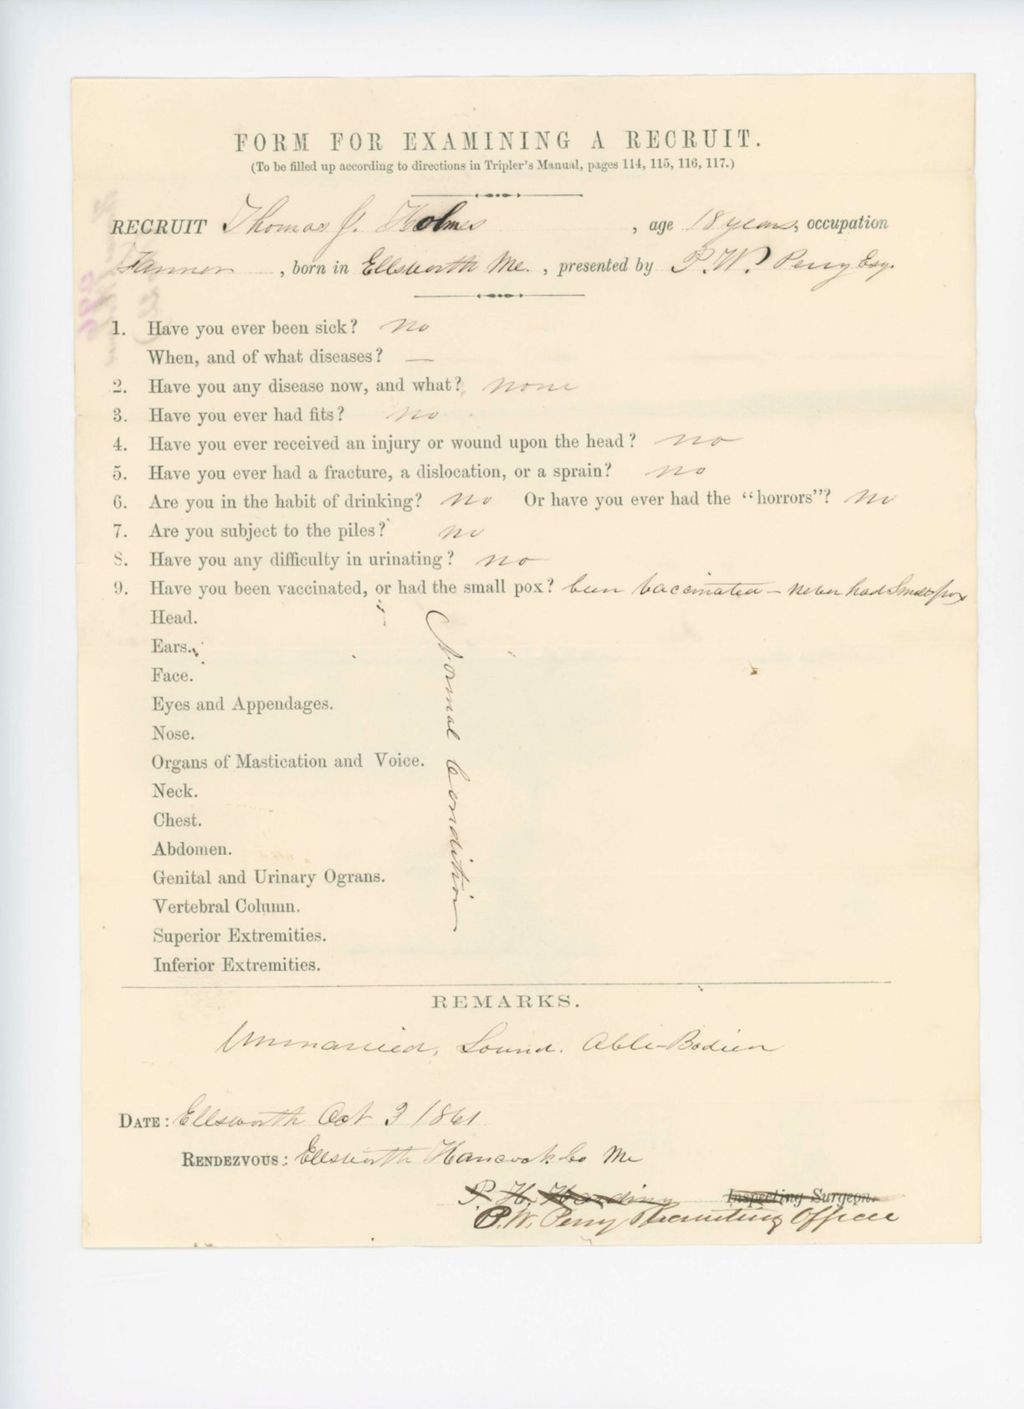 FORM FOR EXAMINING A RECRUIT.
(To be filled up according to directions in Tripler's Manual, pages 114, 115, 116, 117.)
RECRUIT Thomas J. Holmes , age 18 years, occupation
, born in Ellsworth Me. , presented by P. W. Perry Esq.
1. Have you ever been sick? no
When, and of what diseases? —
2. Have you any disease now, and what? none
3. Have you ever had fits? no
4. Have you ever received an injury or wound upon the head? no
5. Have you ever had a fracture, a dislocation, or a sprain? no
6. Are you in the habit of drinking? no Or have you ever had the "horrors"? no
7. Are you subject to the piles? no
8. Have you any difficulty in urinating? no
9. Have you been vaccinated, or had the small pox? been vaccinated – never had Smallpox
Head.
Ears.
Face.
Eyes and Appendages.
Nose.
Organs of Mastication and Voice.
Neck.
Chest.
Abdomen.
Genital and Urinary Ograns.
Vertebral Column.
Superior Extremities.
Inferior Extremities.
Normal Condition
REMARKS.
Unmarried, Sound. Able-Bodied
DATE: Ellsworth Oct 3 1861
RENDEZVOUS: Ellsworth Hancock Co Me
P. H. Harding Inspecting Surgeon.
P. W. Perry Recruiting Officer